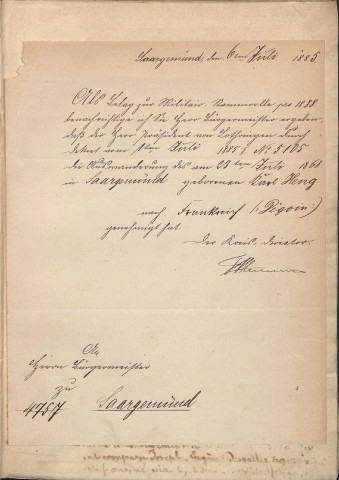 Saargemünd, den 6ten Juli 1885.
Als Belag zur Militair-Stammrolle pro 1888
benachrichtige ich Sie Herr Bürgermeister ergebenst
daß der Herr Präsident von Lothringen durch
Dekret vom 1ten Juli 1885 № 5105
die Auswanderung des am 23ten Juli 1868
in Saargemünd geborenen Karl Heng
nach Frankreich (:Digoin:)
genehmigt hat
Der Kreis-director:
An
Herrn Bürgermeister
zu
4757 Saargemünd